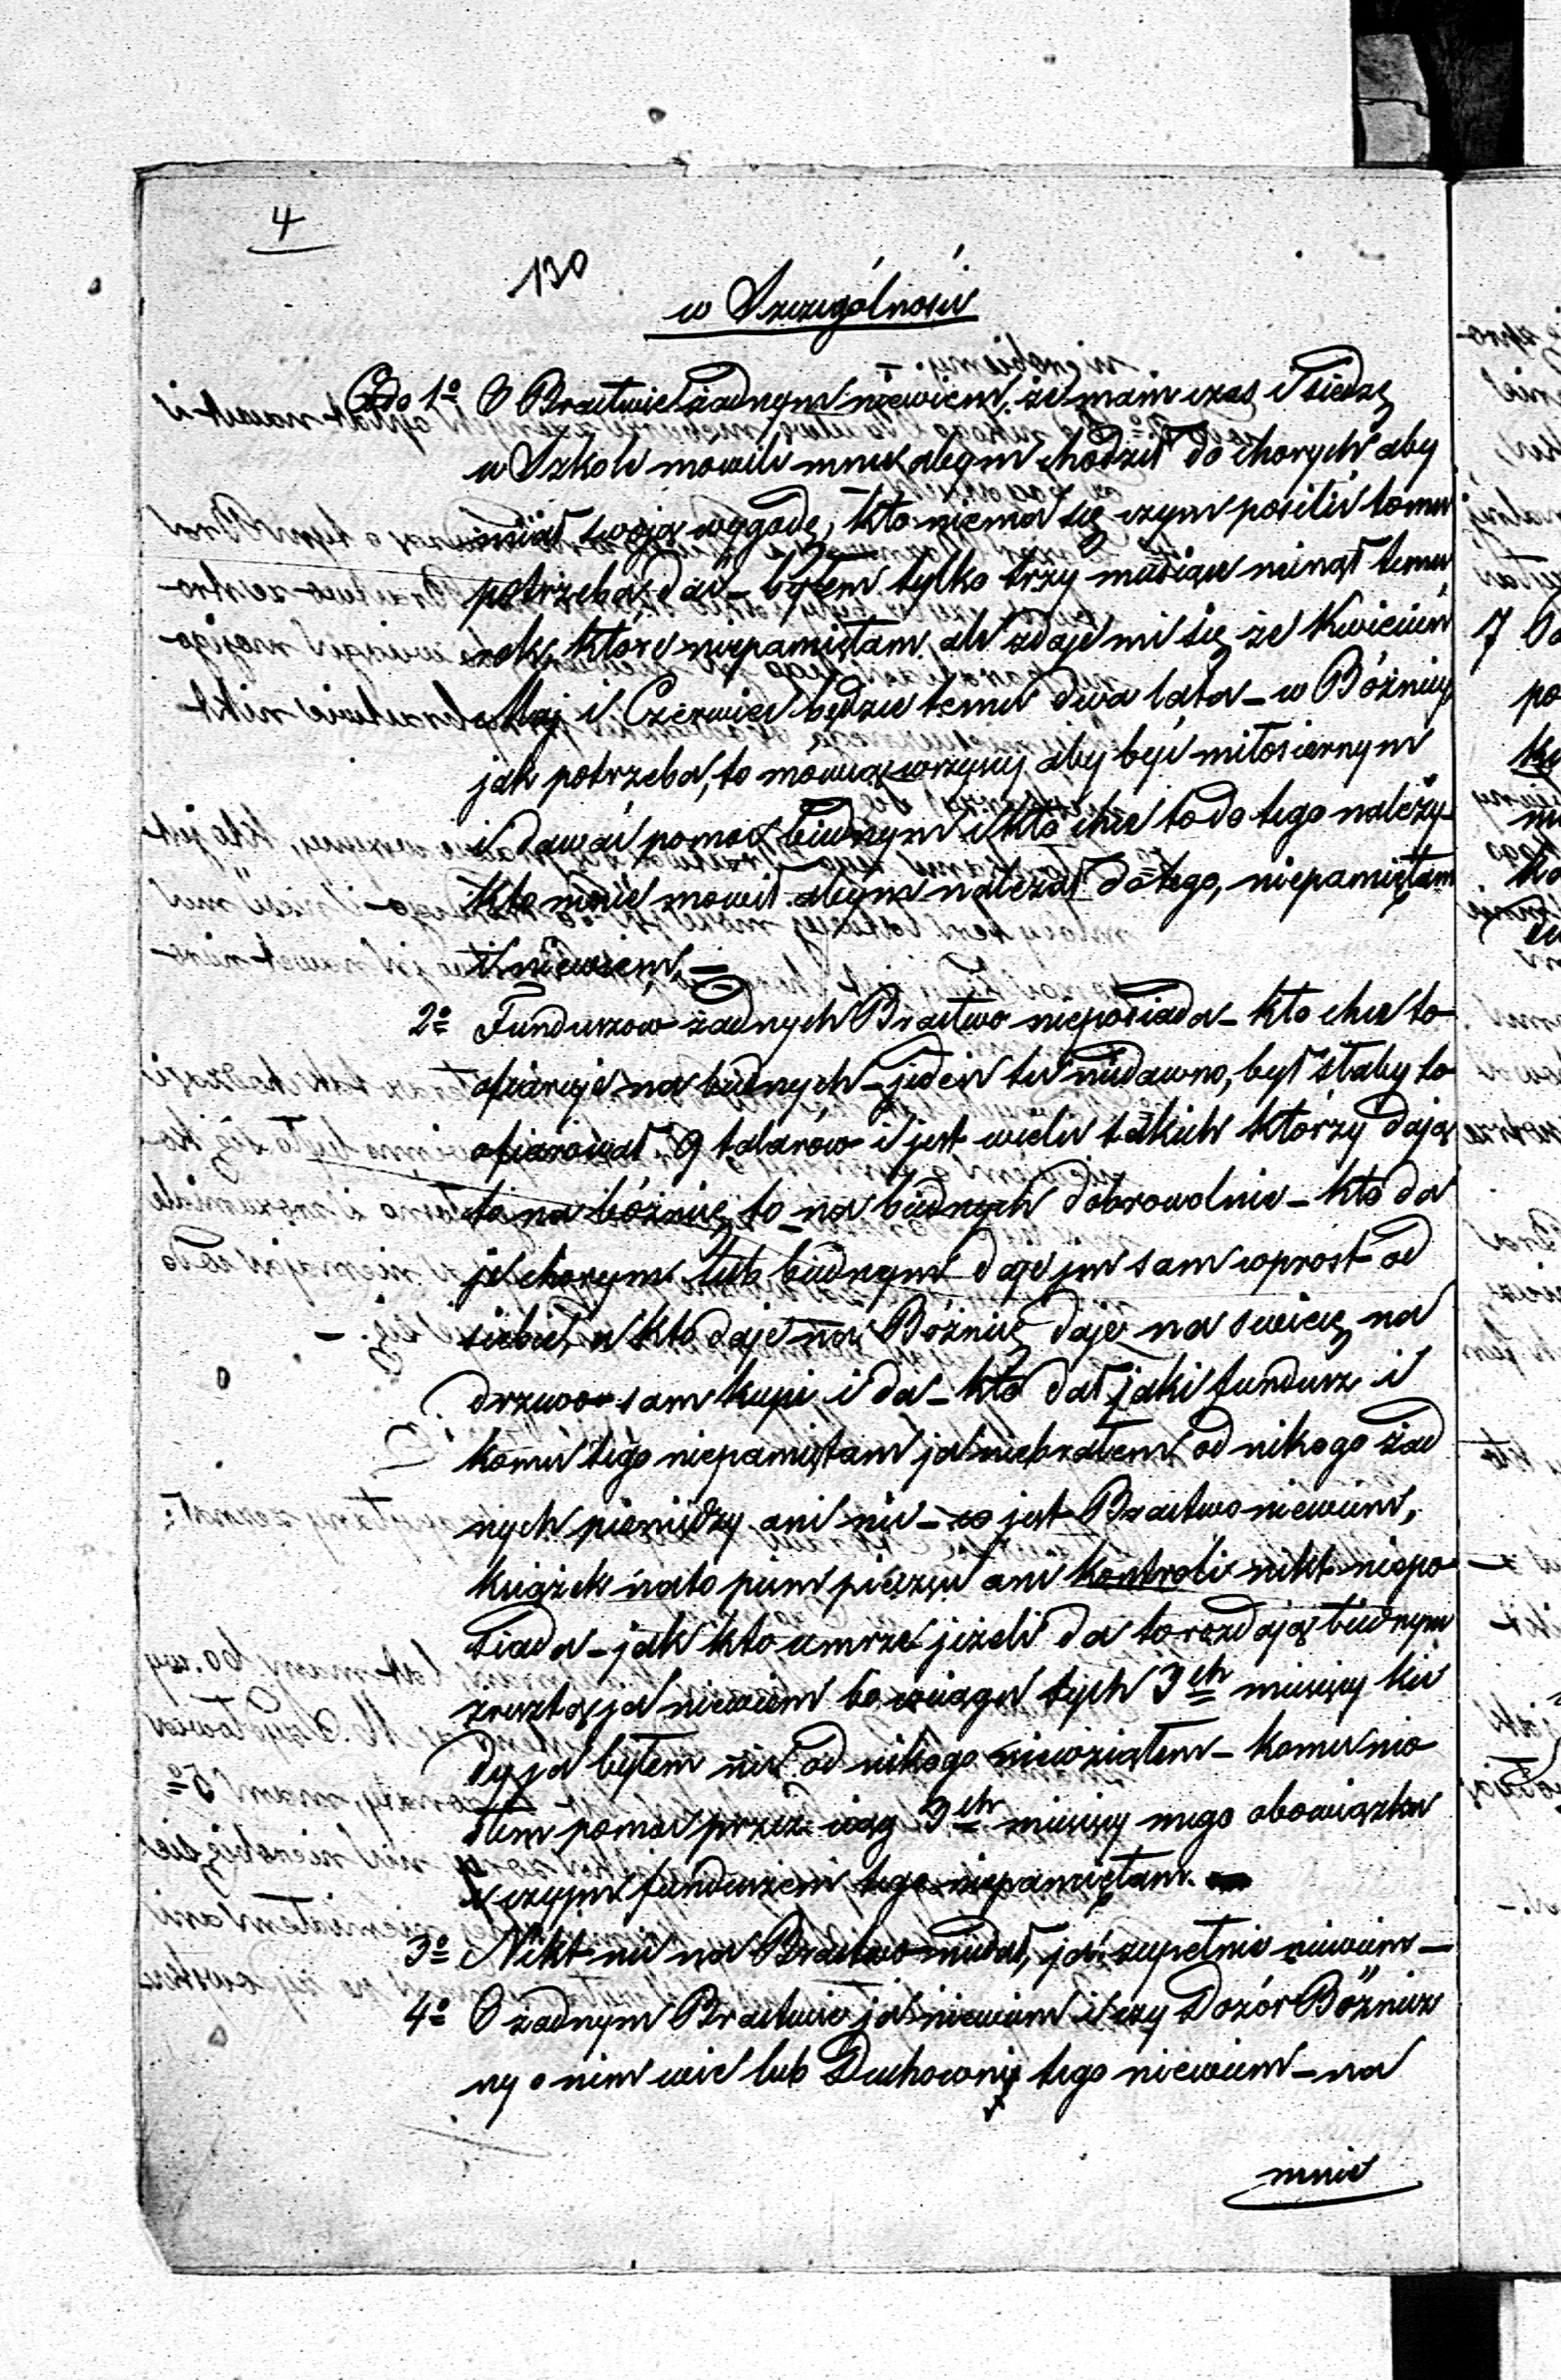 4
130
w Szczególności
Do 1o O Bractwie żadnym niewiem, że mam czas i siedzę
w Szkole mowili mnie abym chodził do chorych aby
miał swoją wygodę, kto niema się czym posilić temu
potrzeba dać – byłem tylko trzy miesiące minął temu
rok, które niepamiętam, ale zdaje mi się że Kwiecień
Maj i Czerwiec będzie temu dwa lata – w Bóżnicy
jak potrzeba, to mówią wszyscy aby być miłosiernym
i dawać pomoc biednym i kto chce to do tego należy –
kto mnie mowił abym należał do tego, niepamiętam
i niewiem. –
2o Funduszow żadnych Bractwo nieposiada – kto chce to
ofiaruje na biednych – jeden tu niedawno, był słaby to
ofiarował 9 talarów i jest wiele takich którzy dają
to na bóżnicę to na biednych dobrowolnie – kto da
je chorym lub biednym daje im sam wprost od
siebie, a kto daje na Bóżnicę daje na swiece, na
drzewo sam kupi i da – kto dał jaki fundusz i
komu tego niepamiętam ja niebrałem od nikogo żad
nych pieniędzy ani nic – co jest Bractwo niewiem,
książek na to pism pieczęci ani kontroli nikt niepo
siada – jak kto umrze jeżeli da to rozdają biednym
zresztą ja niewiem bo w ciągu tych 3ch miesięcy kie
dy ja byłem nic od nikogo niewziąłem – komu nio
słem pomoc przez ciąg 3ch miesięcy mego obowiązku
i czyjem funduszem tego niepamiętam.
3o Nikt nic na Bractwo niedał, ja zupełnie niewiem –
4o O żadnym Bractwie ja niewiem i czy Dozór Bóżnicz
ny o nim wie lub Duchowny tego niewiem – na
mnie